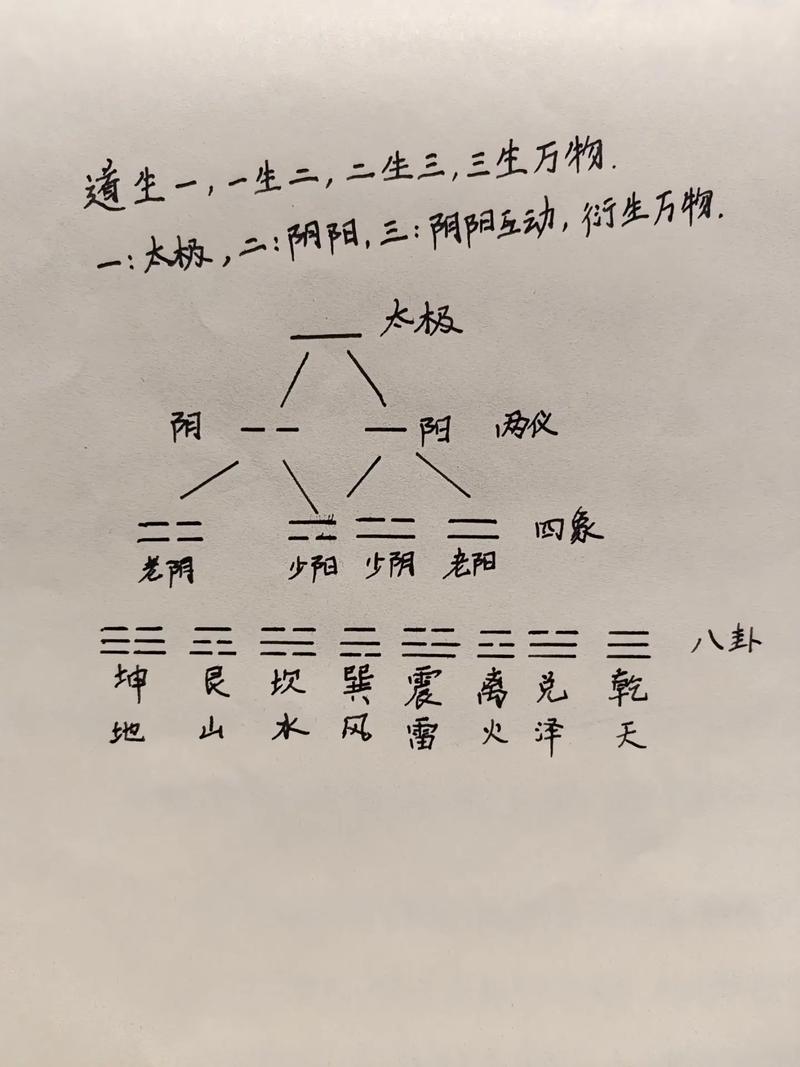 道生一,一生二,二生三,三生万物.
一:太极,二:阴阳,三:阴阳互动,衍生万物.
太极
阴 阳 两仪
四象
老阴 少阳 少阴 老阳
八卦
坤 艮 坎 巽 震 离 兑 乾
地 山 水 风 雷 火 泽 天